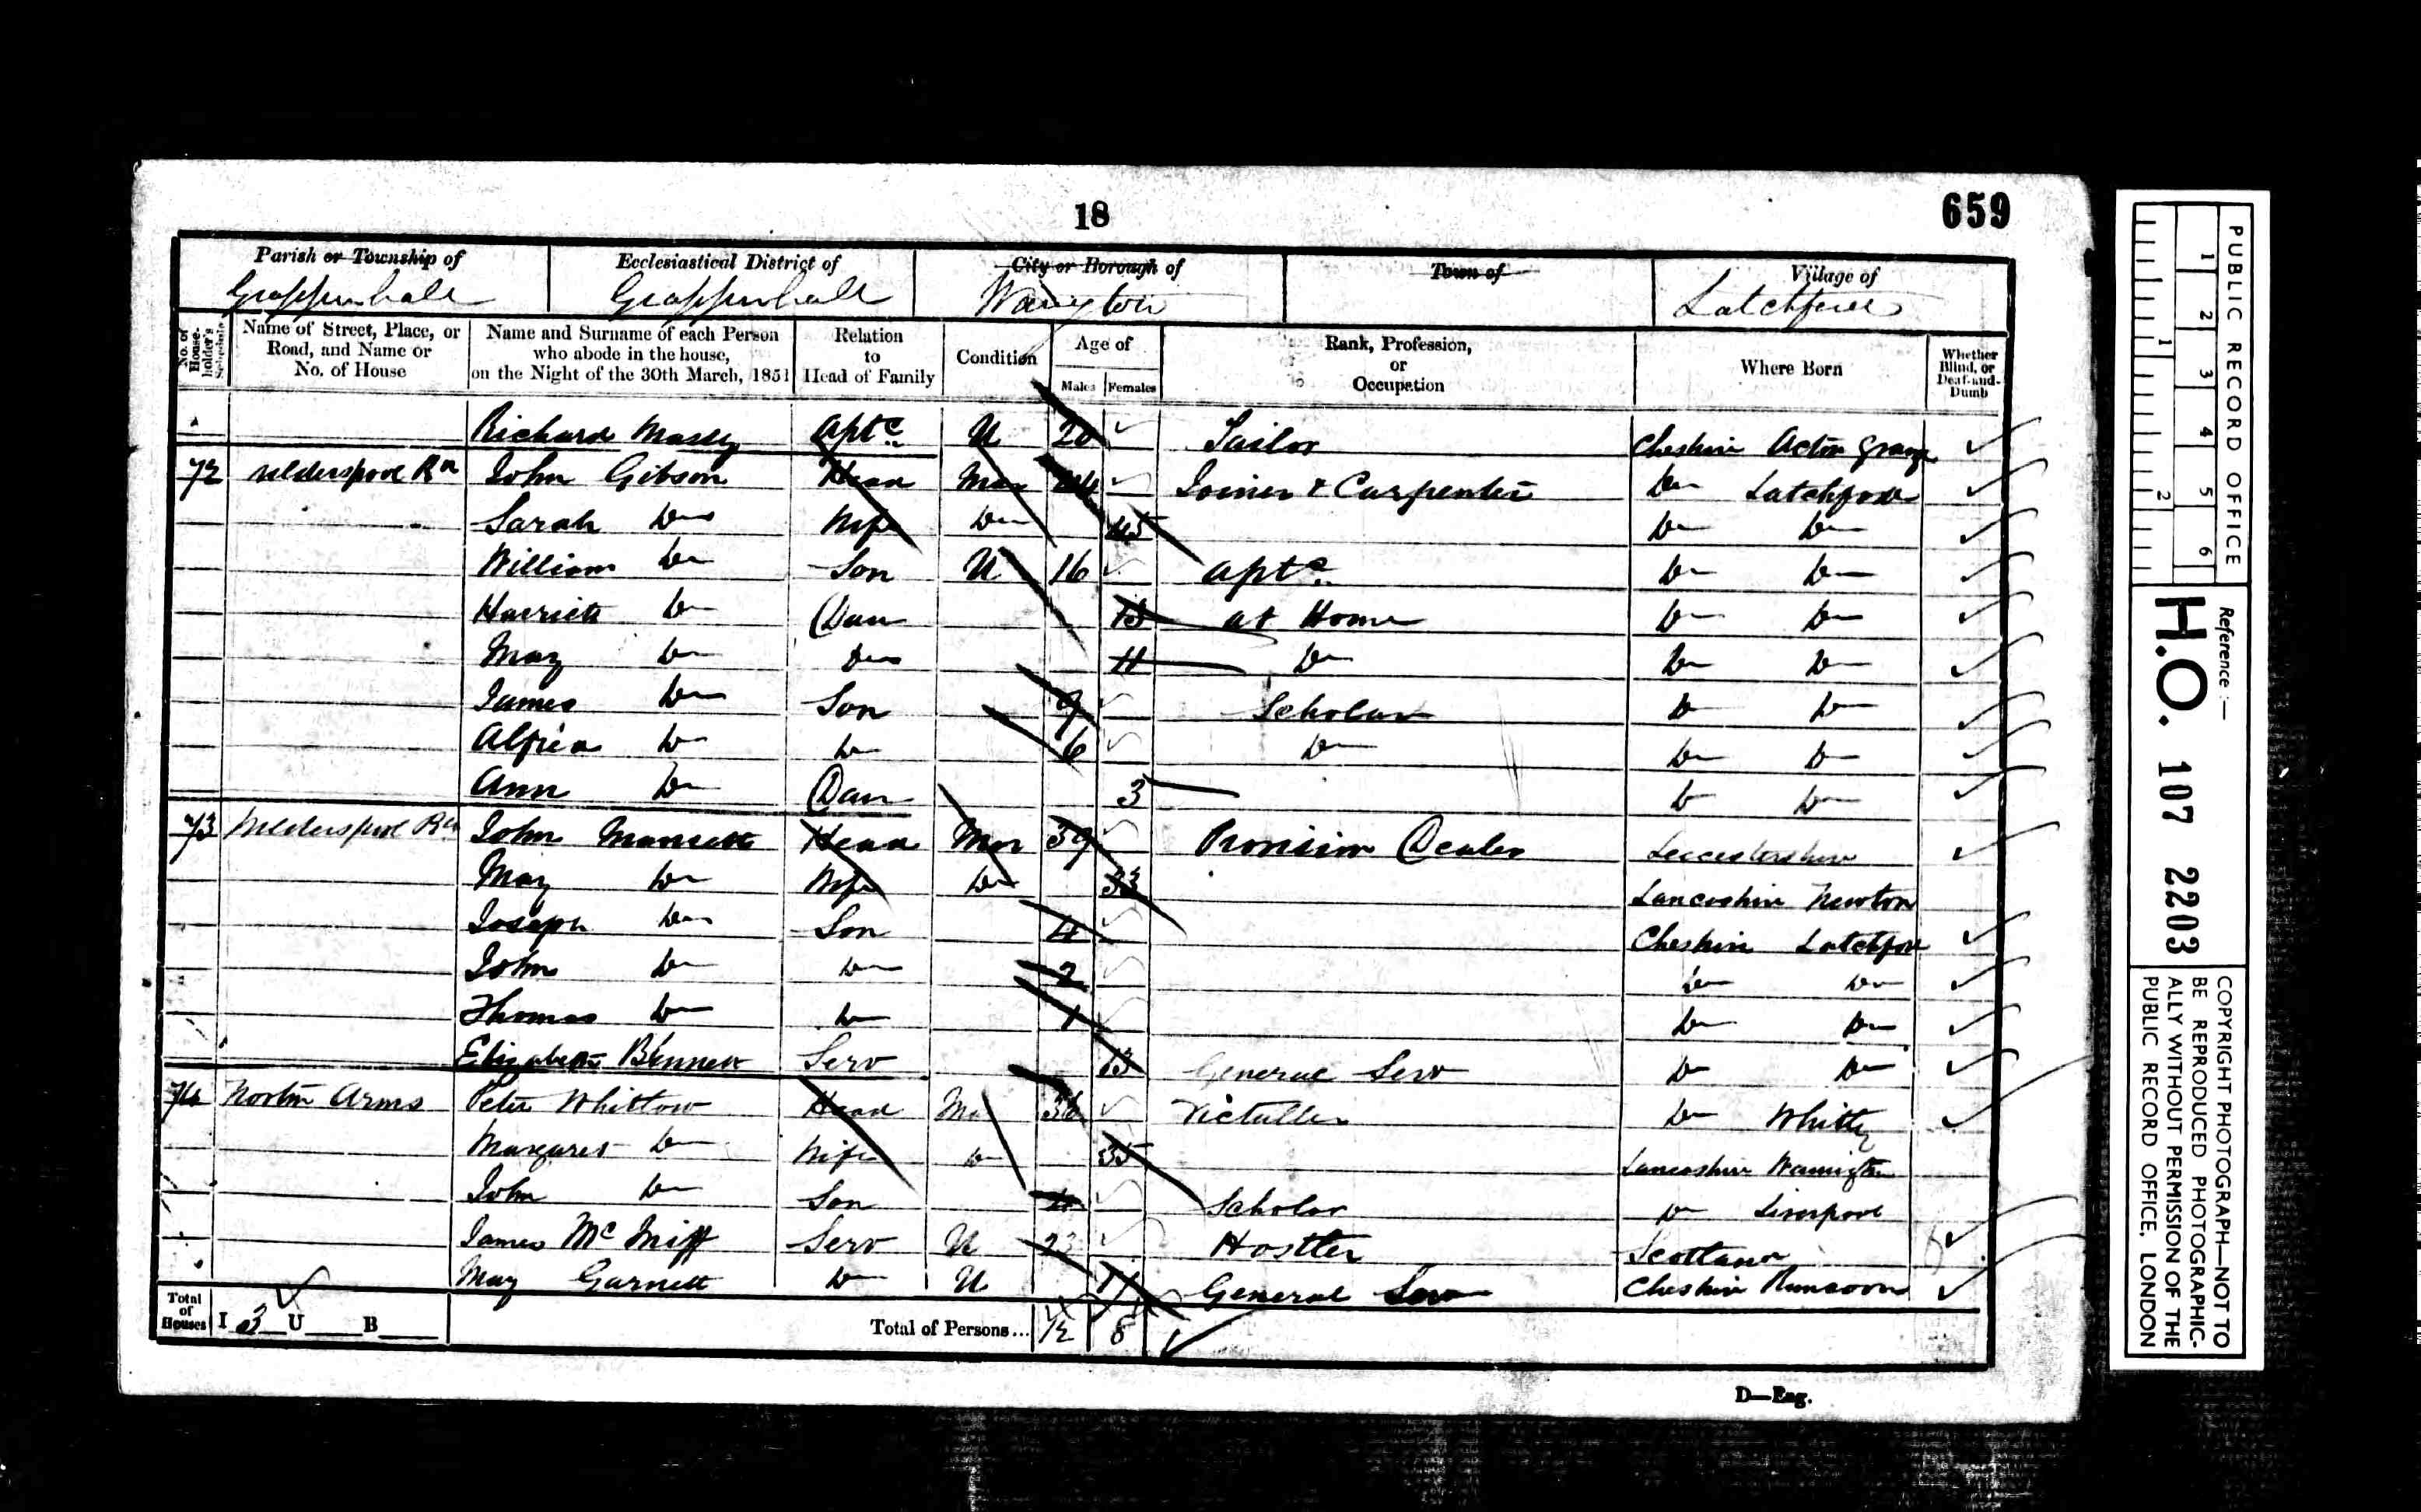 18
659
Parish or Township of
Grappenhall
Ecclesiastical District of
Grappenhall
City or Borough of
Warrington
Town of
Village of
Latchford
No. of House-holder's Schedule
Name of Street, Place, or Road, and Name or No. of House
Name and Surname of each Person who abode in the house, on the Night of the 30th March, 1851
Relation to Head of Family
Condition
Age of
Males Females
Rank, Profession, or Occupation
Where Born
Whether Blind, or Deaf-and-Dumb
Richard Massey Aptc U 20 Sailor Cheshire Acton Grange
72 Wilderspool Rd John Gibson Head Mar 44 Joiner & Carpenter Do Latchford
Sarah Do Wife Do 45 Do Do
William Do Son U 16 Aptc Do Do
Harriett Do Dau 13 at Home Do Do
Mary Do Do 11 Do Do Do
James Do Son 9 Scholar Do Do
Alfred Do Do 6 Do Do Do
Ann Do Dau 3 Do Do
73 Wilderspool Rd John Head Mar 39 Provision Dealer Leicestershire
Mary Do Wife Do 33 Lancashire Newton
Joseph Do Son 4 Cheshire Latchford
John Do Do 2 Do Do
Thomas Do Do 1 Do Do
Elizabeth Bennett Serv 13 General Serv Do Do
74 Norton Arms Peter Whitlow Head Mar 36 Victualler Do Whitley
Margaret Do Wife Do 35 Lancashire Warrington
John Do Son Scholar Do Liverpool
James Mc Niff Serv U 23 Hostler Scotland
Mary Garnett Do U 17 General Serv Cheshire Runcorn
Total of Houses I 3 U B Total of Persons... 12 8
D—Eng.
PUBLIC RECORD OFFICE
1 2 3 4 5 6
1 2
Reference:—
H.O. 107 2203
COPYRIGHT PHOTOGRAPH—NOT TO
BE REPRODUCED PHOTOGRAPHIC-
ALLY WITHOUT PERMISSION OF THE
PUBLIC RECORD OFFICE, LONDON